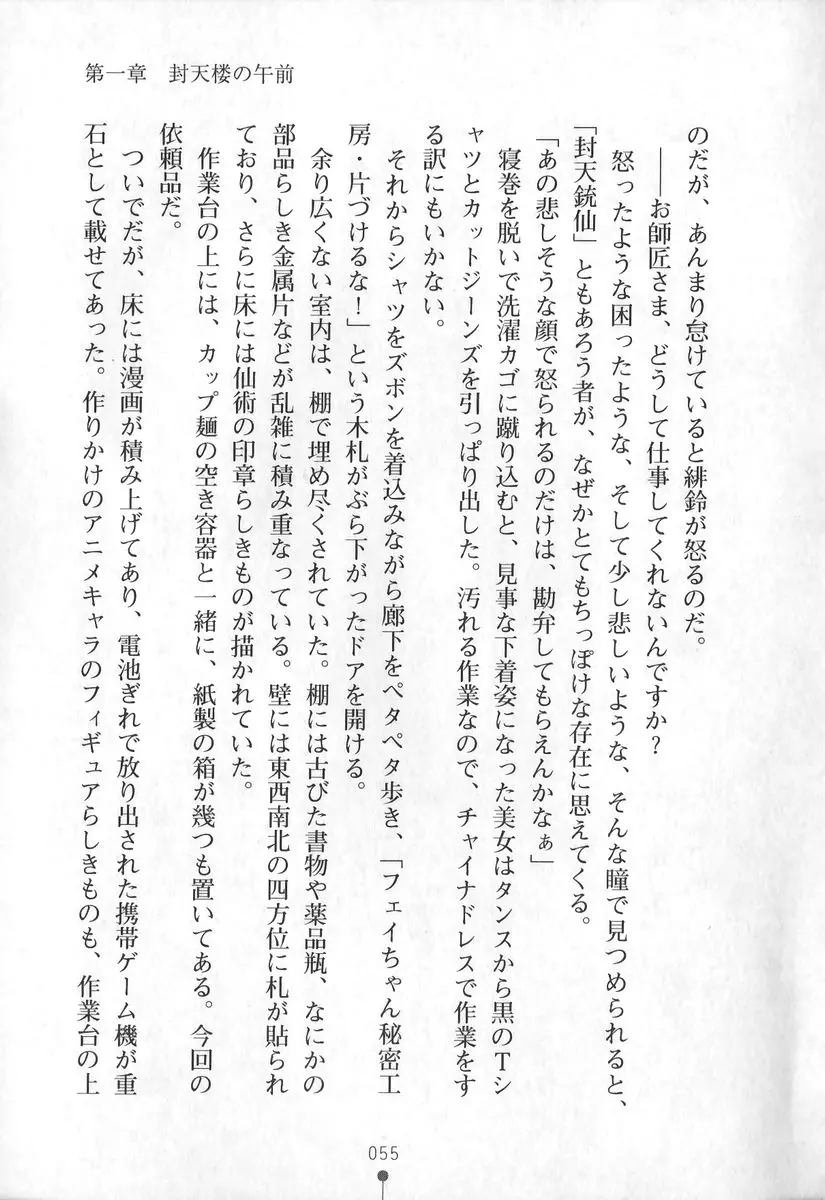 第一章　封天楼の午前
のだが、あんまり怠けていると緋鈴が怒るのだ。
――お師匠さま、どうして仕事してくれないんですか？
怒ったような困ったような、そして少し悲しいような、そんな瞳で見つめられると、
「封天銃仙」ともあろう者が、なぜかとてもちっぽけな存在に思えてくる。
「あの悲しそうな顔で怒られるのだけは、勘弁してもらえんかなぁ」
寝巻を脱いで洗濯カゴに蹴り込むと、見事な下着姿になった美女はタンスから黒のＴシ
ャツとカットジーンズを引っぱり出した。汚れる作業なので、チャイナドレスで作業をす
る訳にもいかない。
それからシャツをズボンを着込みながら廊下をペタペタ歩き、「フェイちゃん秘密工
房・片づけるな！」という木札がぶら下がったドアを開ける。
余り広くない室内は、棚で埋め尽くされていた。棚には古びた書物や薬品瓶、なにかの
部品らしき金属片などが乱雑に積み重なっている。壁には東西南北の四方位に札が貼られ
ており、さらに床には仙術の印章らしきものが描かれていた。
作業台の上には、カップ麺の空き容器と一緒に、紙製の箱が幾つも置いてある。今回の
依頼品だ。
ついでだが、床には漫画が積み上げてあり、電池ぎれで放り出された携帯ゲーム機が重
石として載せてあった。作りかけのアニメキャラのフィギュアらしきものも、作業台の上
055